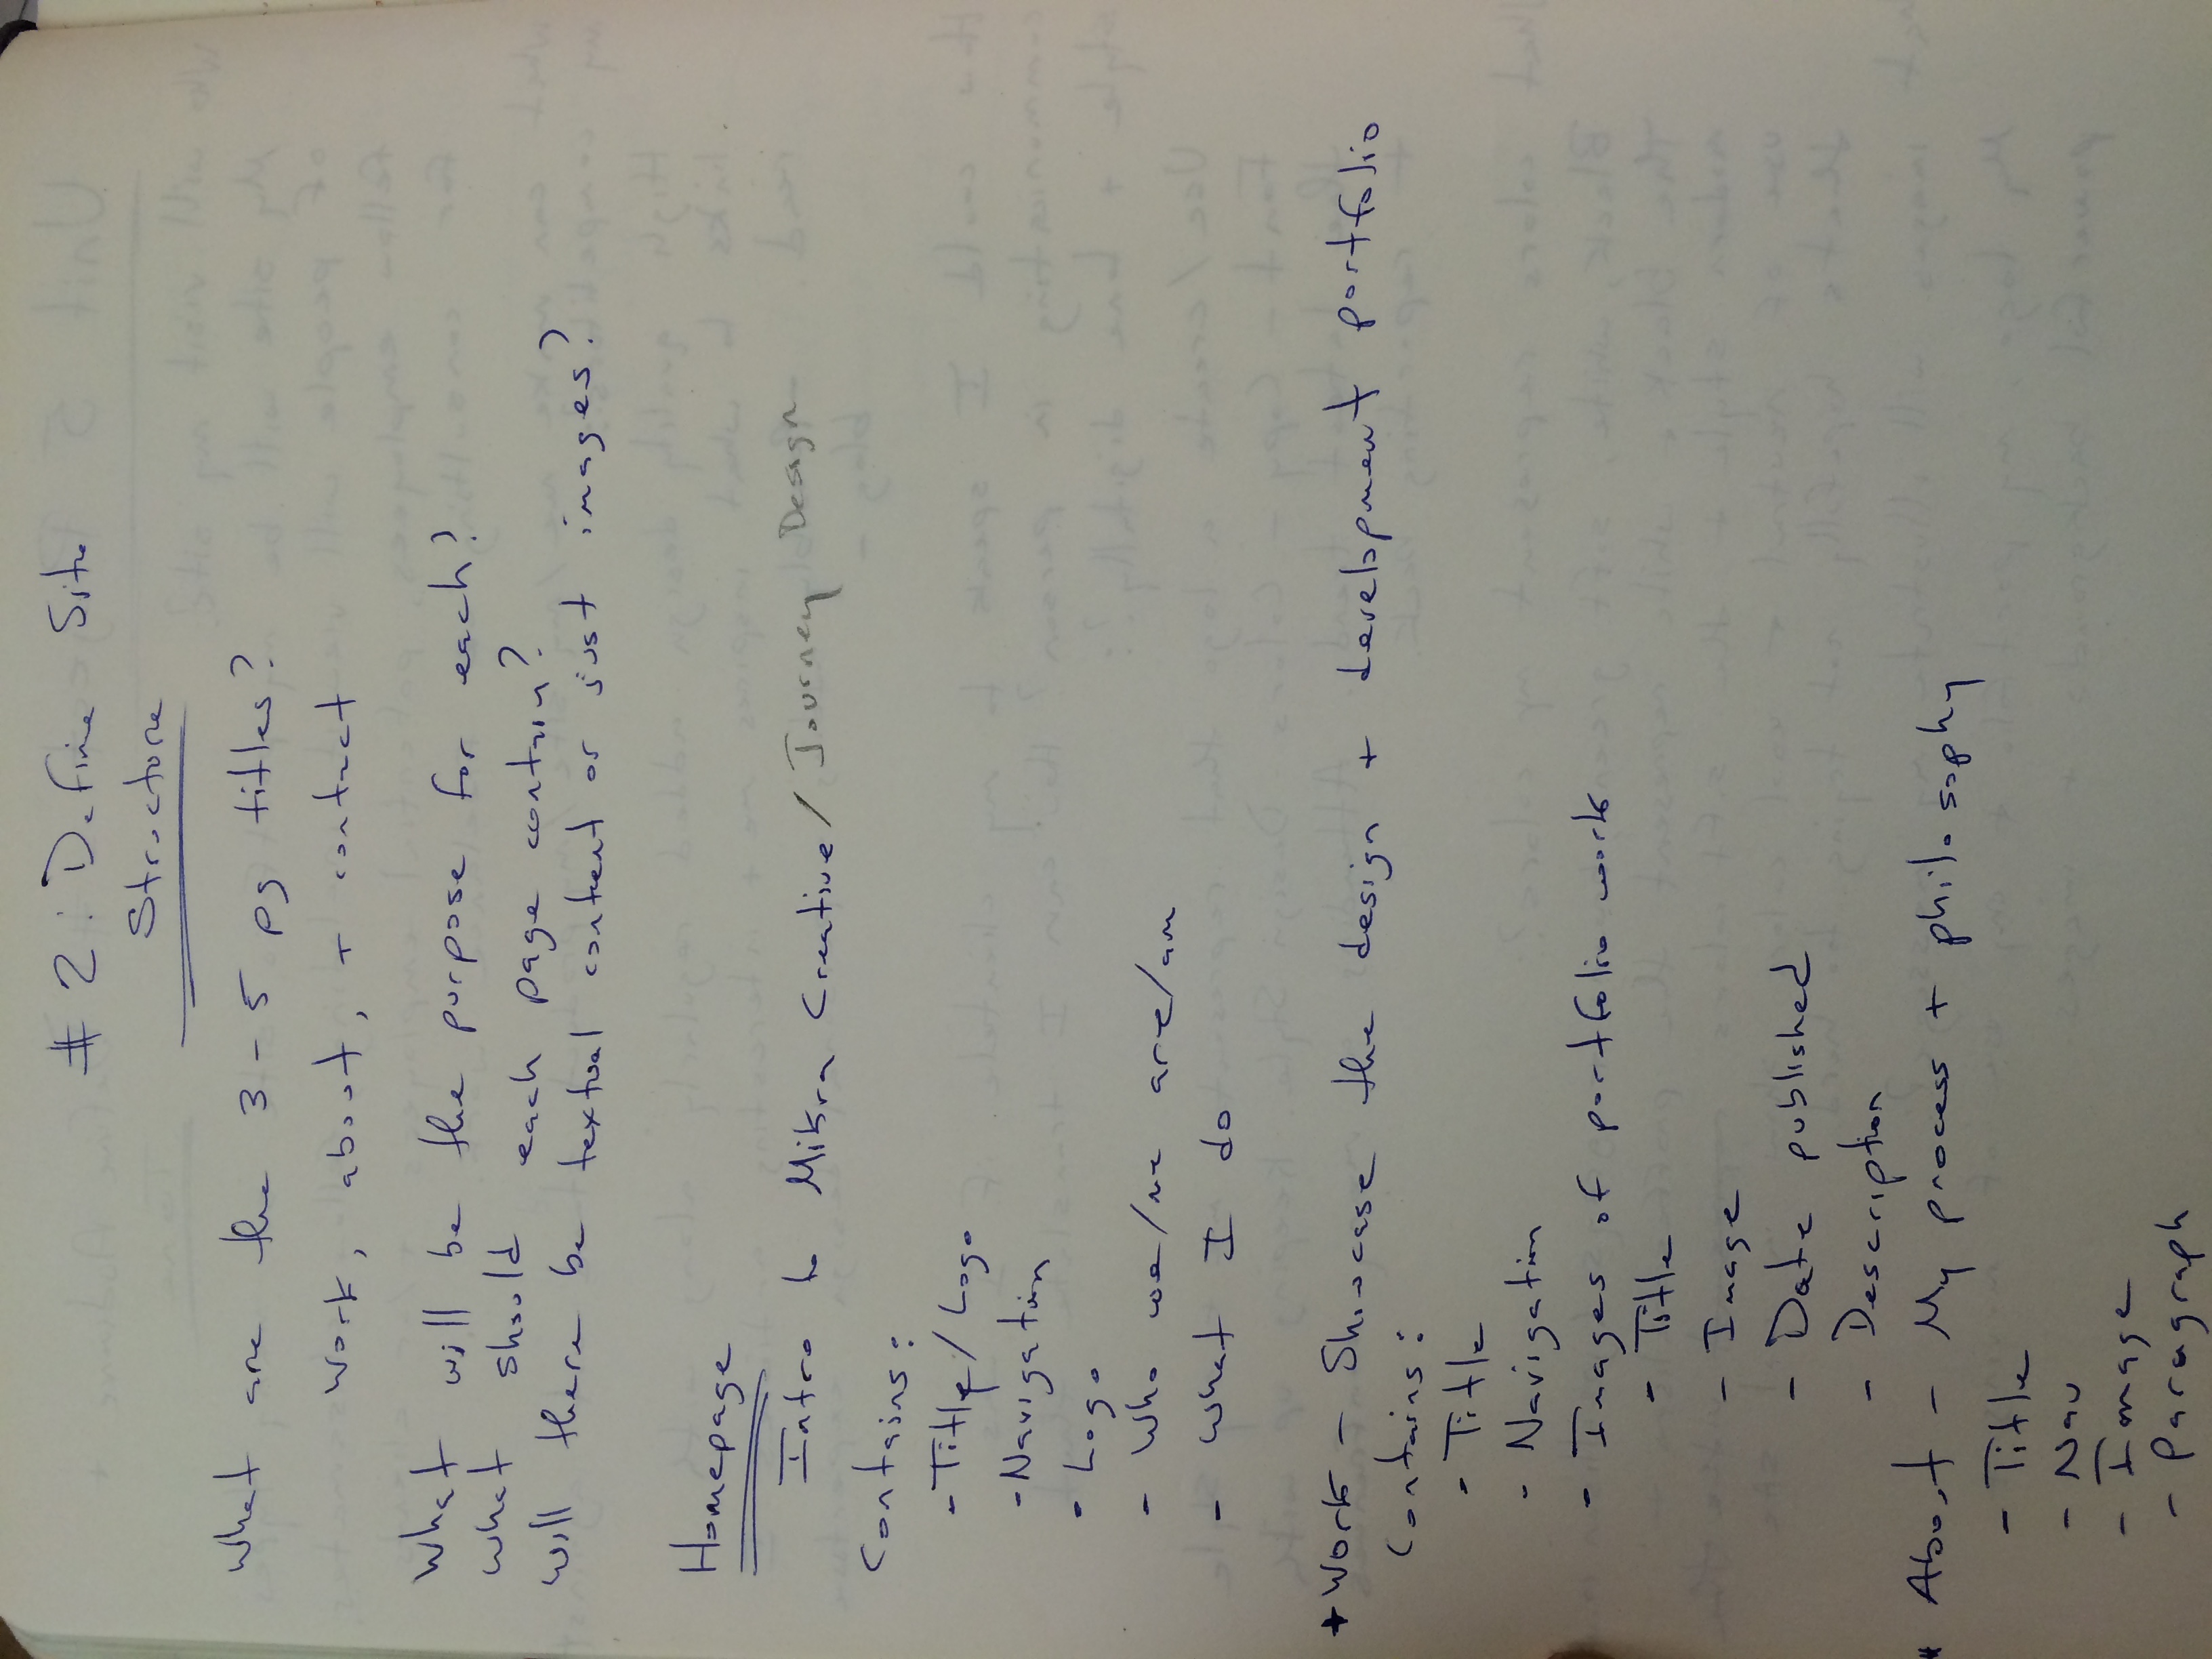 # 2: Define Site
Structure
What are the 3-5 pg titles?
Work, about, + contact
What will be the purpose for each?
What should each page contain?
Will there be textual content or just images?
Homepage
Intro to Mikra Creative / Journey Design
Contains:
- Title/Logo
- Navigation
- Logo
- Who we/me are/am
- What I do
+ Work - Showcase the design + development portfolio
Contains:
- Title
- Navigation
- Images of portfolio work
- Title
- Image
- Date published
- Description
* About - My process + philosophy
- Title
- Nav
- Image
- Paragraph